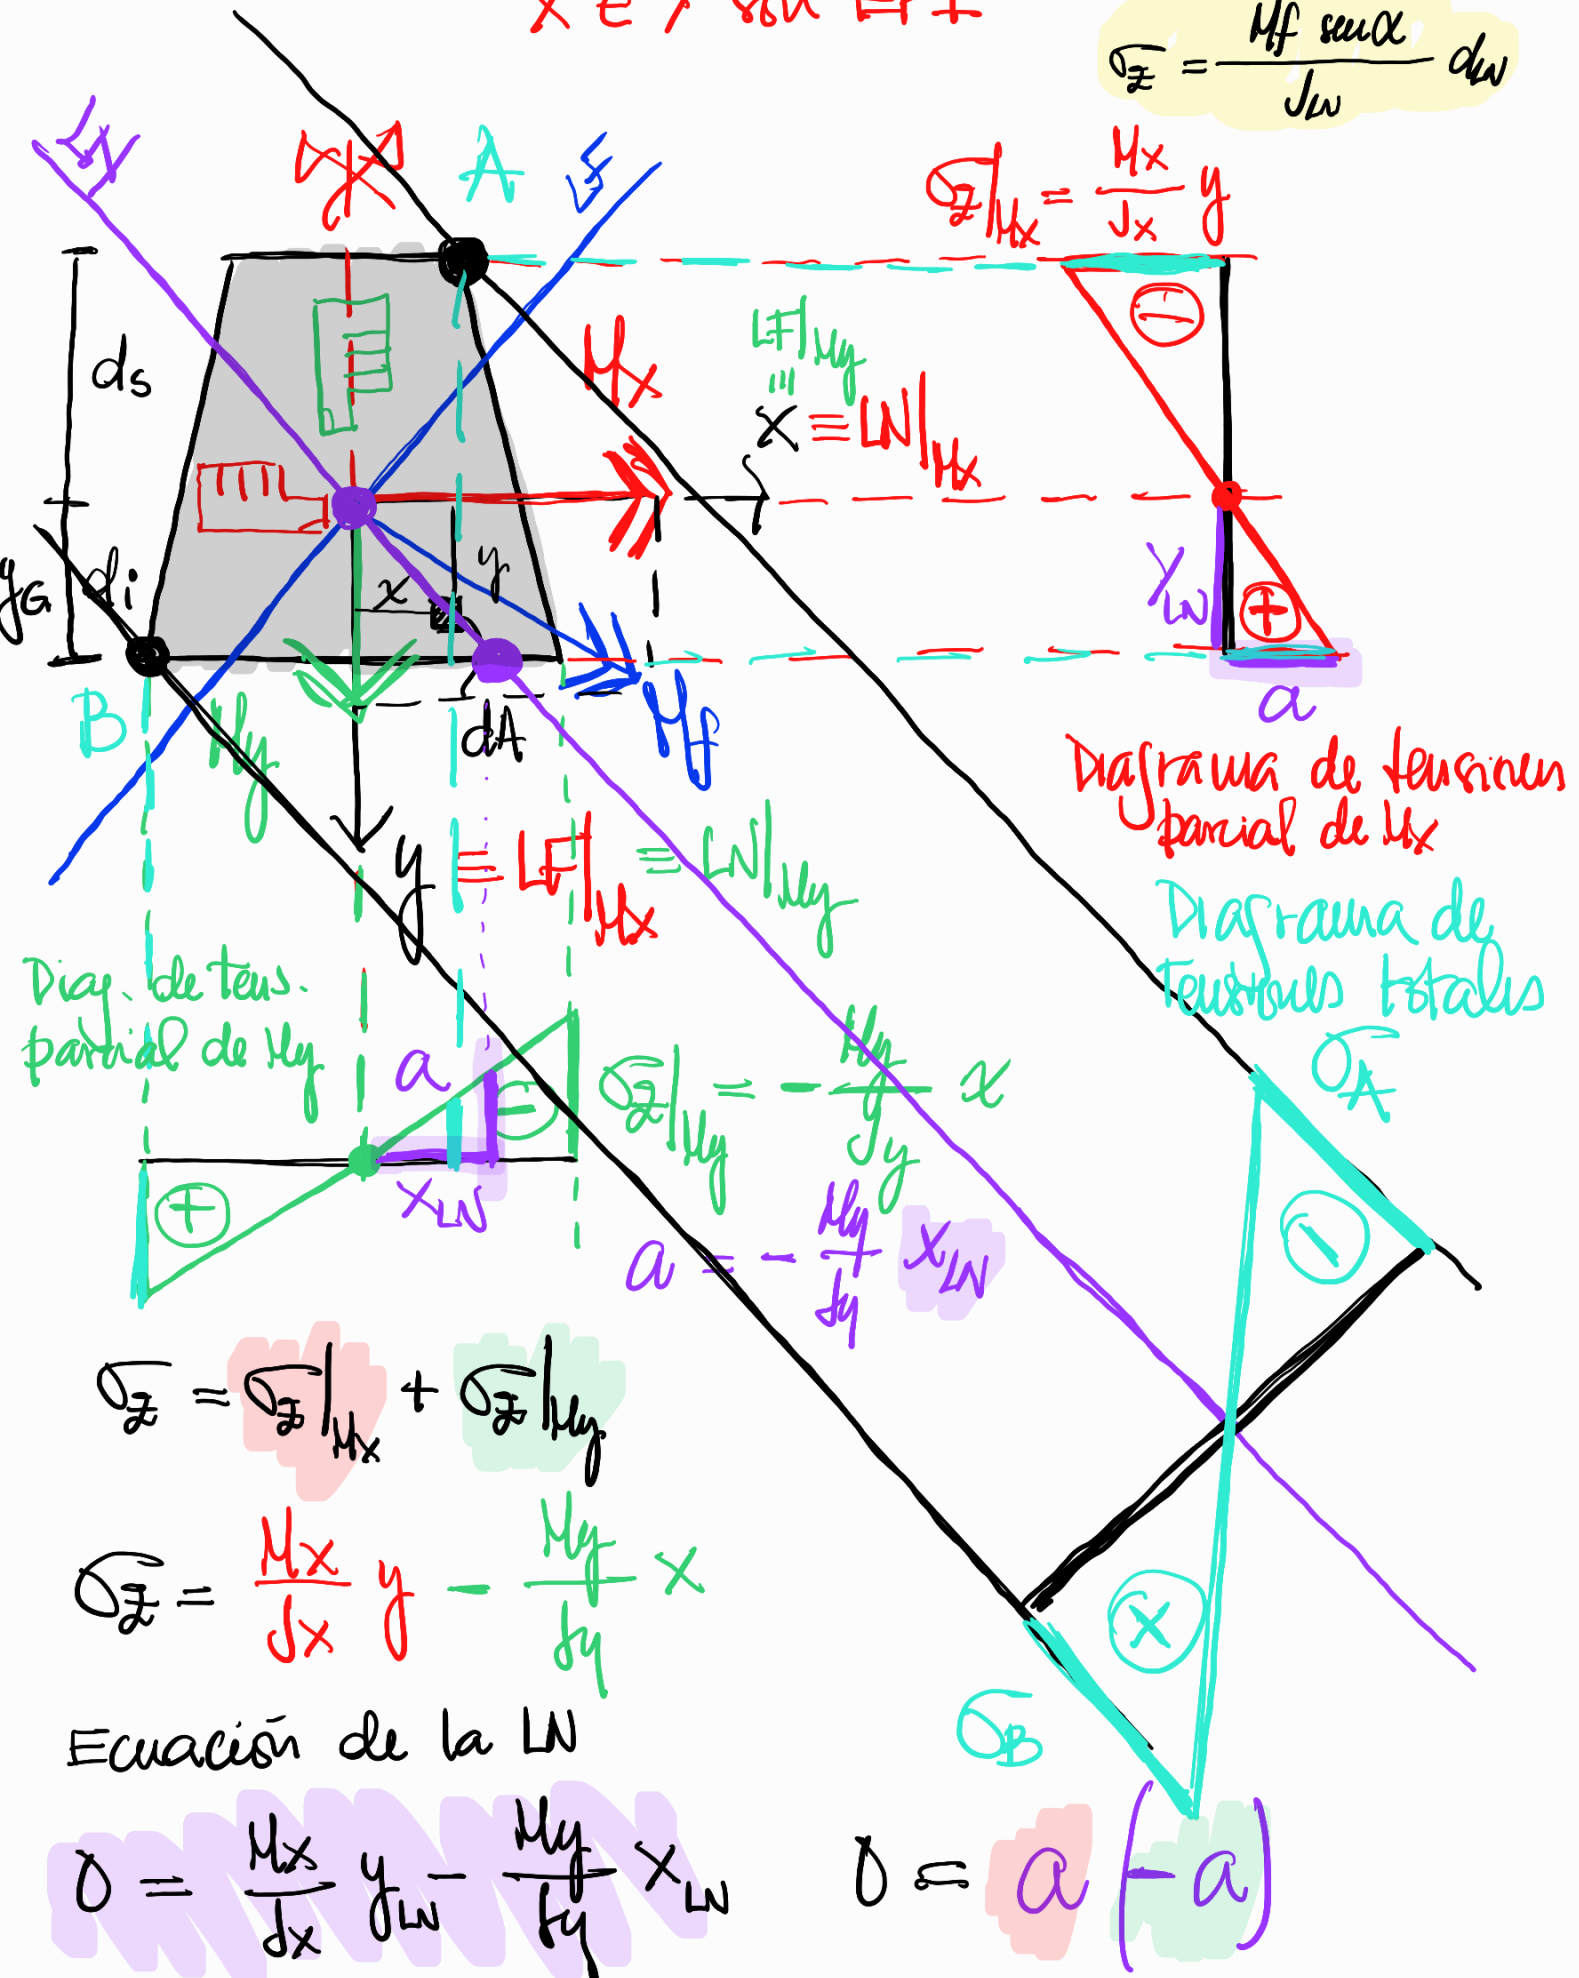 x e y son EPI
σz = Mf senα / JLN dLN
LN
A
LF
σz|Mx = Mx / Jx y
ds
Mx
LF|My
≡
x ≡ LN|Mx
yG
di
x
y
yLN
a
B
My
dA
Mf
Diagrama de tensiones
parcial de Mx
y ≡ LF|Mx ≡ LN|My
Diagrama de
tensiones totales
Diag. de tens.
parcial de My
a
xLN
σz|My = - My / Jy x
σA
a = - My / Jy xLN
σz = σz|Mx + σz|My
σz = Mx / Jx y - My / Jy x
σB
Ecuación de la LN
0 = Mx / Jx yLN - My / Jy xLN
0 = a (- a)